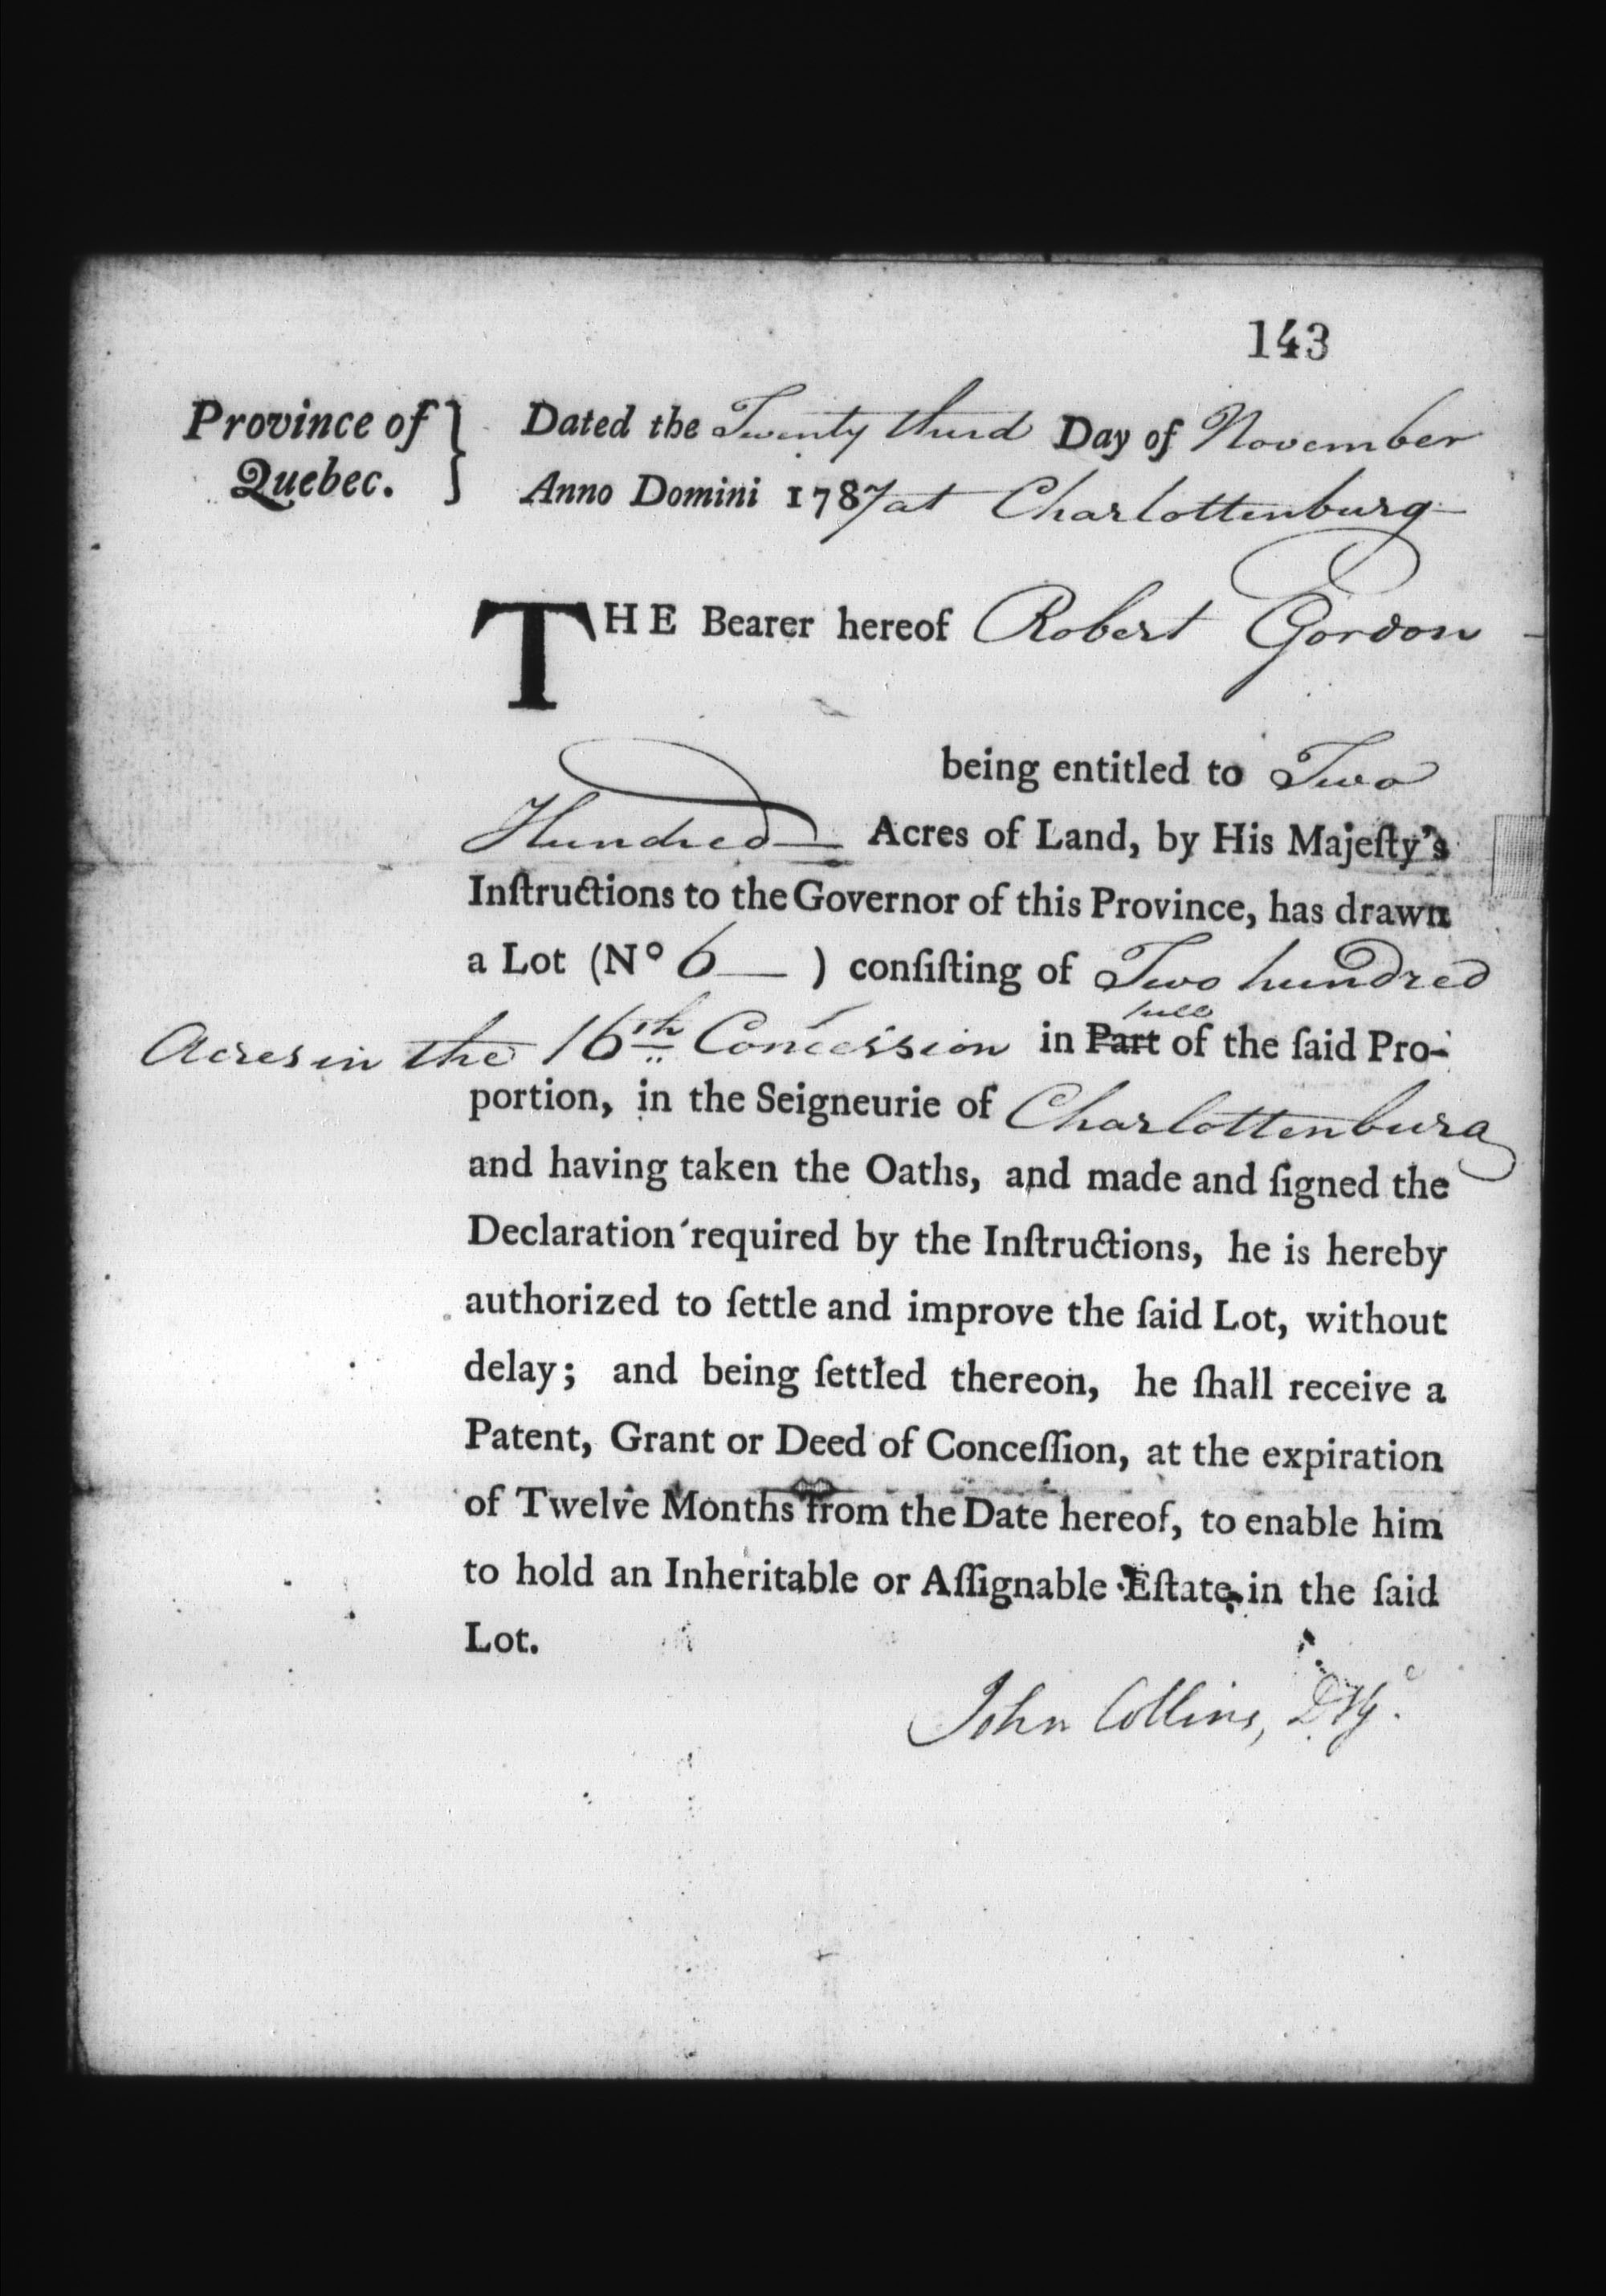 143
Province of } Dated the Twenty third Day of November
Quebec. Anno Domini 1787 at Charlottenburg
THE Bearer hereof Robert Gordon
being entitled to Two
Hundred Acres of Land, by His Majeſty's
Inſtructions to the Governor of this Province, has drawn
a Lot (No 6 ) conſiſting of Two hundred
full
Acres in the 16th Concession in Part of the ſaid Pro-
portion, in the Seigneurie of Charlottenburg
and having taken the Oaths, and made and ſigned the
Declaration required by the Inſtructions, he is hereby
authorized to ſettle and improve the ſaid Lot, without
delay; and being ſettled thereon, he ſhall receive a
Patent, Grant or Deed of Conceſſion, at the expiration
of Twelve Months from the Date hereof, to enable him
to hold an Inheritable or Aſſignable Eſtate in the ſaid
Lot.
John Collins,